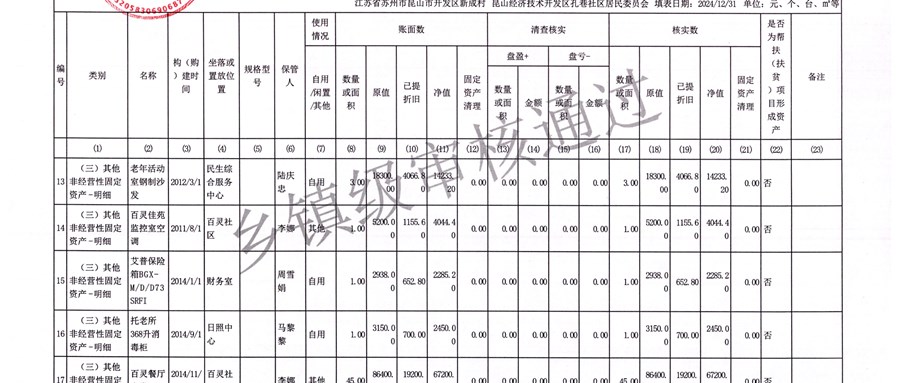 320583069068
江苏省苏州市昆山市开发区新成村 昆山经济技术开发区孔巷社区居民委员会 填表日期: 2024/12/31 单位: 元、个、台、㎡等
编号 类别 名称 构（购）建时间 坐落或置放位置 规格型号 保管人 使用情况 账面数 清查核实 核实数 是否为帮扶（扶贫）项目形成资产 备注
盘盈+ 盘亏-
自用/闲置/其他 数量或面积 原值 已提折旧 净值 固定资产清理 数量或面积 金额 数量或面积 金额 数量或面积 原值 已提折旧 净值 固定资产清理
(1) (2) (3) (4) (5) (6) (7) (8) (9) (10) (11) (12) (13) (14) (15) (16) (17) (18) (19) (20) (21) (22) (23)
13 （三）其他非经营性固定资产-明细 老年活动室钢制沙发 2012/3/1 民生综合服务中心 陆庆忠 自用 3.00 18300.00 4066.80 14233.20 0.00 0.00 0.00 0.00 0.00 3.00 18300.00 4066.80 14233.20 0.00 否
14 （三）其他非经营性固定资产-明细 百灵佳苑监控室空调 2011/8/1 百灵社区 李娜 其他 1.00 5200.00 1155.60 4044.40 0.00 0.00 0.00 0.00 0.00 1.00 5200.00 1155.60 4044.40 0.00 否
15 （三）其他非经营性固定资产-明细 艾普保险箱BGX-M/D/D73SRFI 2014/1/1 财务室 周雪娟 自用 1.00 2938.00 652.80 2285.20 0.00 0.00 0.00 0.00 0.00 1.00 2938.00 652.80 2285.20 0.00 否
16 （三）其他非经营性固定资产-明细 托老所368升消毒柜 2014/9/1 日照中心 马黎黎 自用 1.00 3150.00 700.00 2450.00 0.00 0.00 0.00 0.00 0.00 1.00 3150.00 700.00 2450.00 0.00 否
17 （三）其他非经营性固定 百灵餐厅 2014/11/ 百灵社 李娜 其他 45.00 86400. 19200. 67200. 0.00 0.00 0.00 0.00 0.00 45.00 86400. 19200. 67200. 0.00 否
乡镇级审核通过